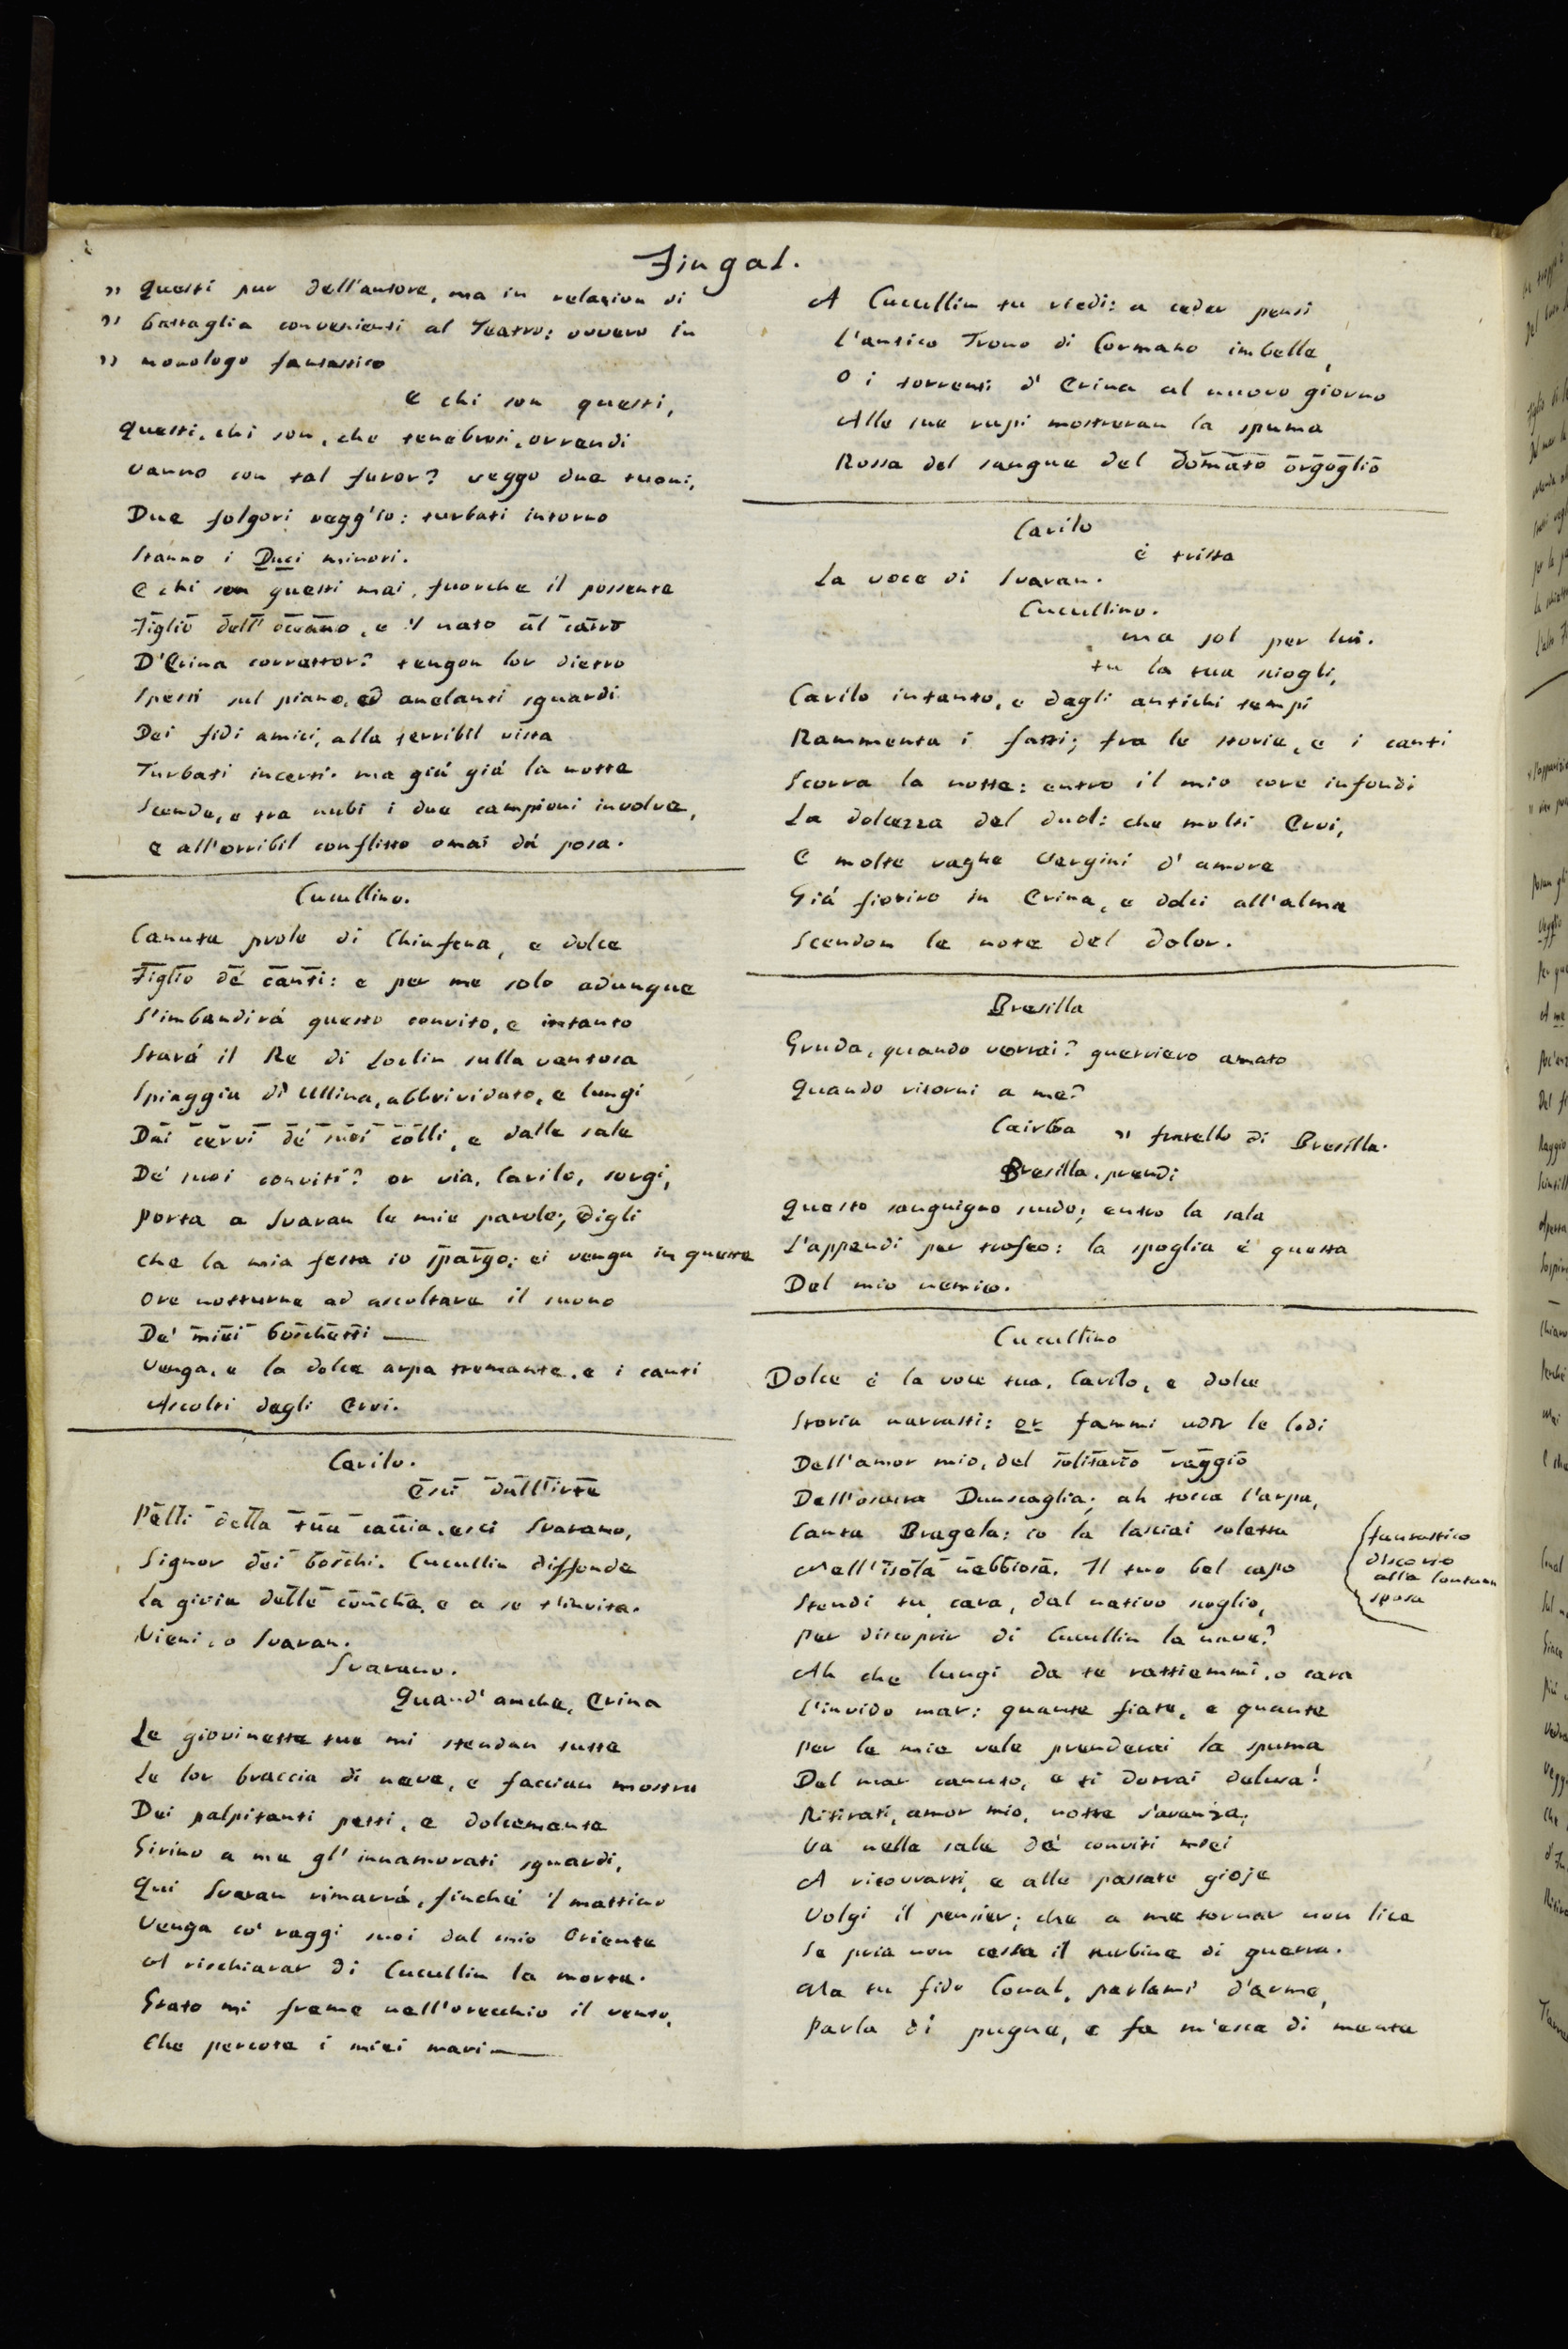 Fingal.
" Questi pur dell'autore, ma in relazion di
" battaglia convenienti al Teatro: ovvero in
" monologo fantastico
e chi son questi,
Questi, chi son, che tenebrosi, orrendi
Vanno con tal furor? veggo due tuoni,
Due folgori vegg'io: turbati intorno
Stanno i Duci minori.
E chi son questi mai, fuorche il possente
Figlio dell'oceano, e 'l nato al carro
D'Erina correttor? tengon lor dietro
Spessi sul piano, ed anelanti sguardi
Dei fidi amici, alla terribil vista
Turbati incerti. ma giá giá la notte
Scende, e tra nubi i due campioni involve,
E all'orribil conflitto omai dá posa.
Cucullino.
Canuta prole di Chinfena, e dolce
Figlio de' canti: e per me solo adunque
S'imbandirá questo convito, e intanto
Stará il Re di Loclin sulla ventosa
Spiaggia di Ullina, abbrividato, e lungi
Dai cervi de' suoi colli, e dalle sale
De' suoi conviti? or via, Carilo, sorgi,
Porta a Svaran le mie parole; digli
Che la mia festa io spargo: ei venga in queste
Ore notturne ad ascoltare il suono
De' miei boschetti —
Venga, e la dolce arpa tremante, e i canti
Ascolti degli Eroi.
Carilo.
Esci dall'irte
Pelli della tua caccia, esci Svarano,
Signor dei boschi. Cucullin diffonde
La gioia delle conche, e a se t'invita.
Vieni, o Svaran.
Svarano.
Quand'anche, Erina
Le giovinette tue mi stendan tutte
Le lor braccia di neve, e faccian mostra
Dei palpitanti petti, e dolcemente
Girino a me gl'innamorati sguardi,
Qui Svaran rimarrá, finché 'l mattino
Venga co' raggi suoi dal mio Oriente
A rischiarar di Cucullin la morte.
Grato mi freme nell'orecchio il vento,
Che percote i miei mari —
A Cucullin tu riedi: a ceder pensi
L'antico Trono di Cormano imbelle,
O i torrenti d'Erina al nuovo giorno
Alle sue rupi mostreran la spuma
Rossa del sangue del domato orgoglio
Carilo
é trista
La voce di Svaran.
Cucullino.
ma sol per lui.
tu la tua sciogli,
Carilo intanto, e degli antichi tempi
Rammenta i fatti; fra le storie, e i canti
Scorra la notte: entro il mio core infondi
La dolcezza del duol: che molti Eroi,
E molte vaghe Vergini d'amore
Giá fioriro in Erina, e dolci all'alma
Scendon le note del dolor.
Bresilla
Gruda, quando verrai? guerriero amato
Quando ritorni a me?
Cairba " fratello di Bresilla.
Bresilla, prendi
Questo sanguigno scudo; entro la sala
L'appendi per trofeo: la spoglia é questa
Del mio nemico.
Cucullino
Dolce é la voce tua, Carilo, e dolce
Storia narrasti: or fammi udir le lodi
Dell'amor mio, del solitario raggio
Dell'oscura Dunscaglia; ah tocca l'arpa,
Canta Bragela: io la lasciai soletta
Nell'isola nebbiosa. Il tuo bel capo
Stendi tu, cara, dal nativo scoglio,
Per discoprir di Cucullin la nave?
Ah che lungi da te rattiemmi, o cara
L'invido mar: quante fiate, e quante
Per le mie vele prenderai la spuma
Del mar canuto, e ti dorrai delusa!
Ritirati, amor mio, notte s'avanza,
Va nelle sale de' conviti miei
A ricovrarti, e alle passate gioje
Volgi il pensier; che a me tornar non lice
Se pria non cessa il turbine di guerra.
Ma tu fido Conal, parlami d'arme,
Parla di pugne, e fa m'esca di mente
fantastico
discorso
alla lontana
sposa